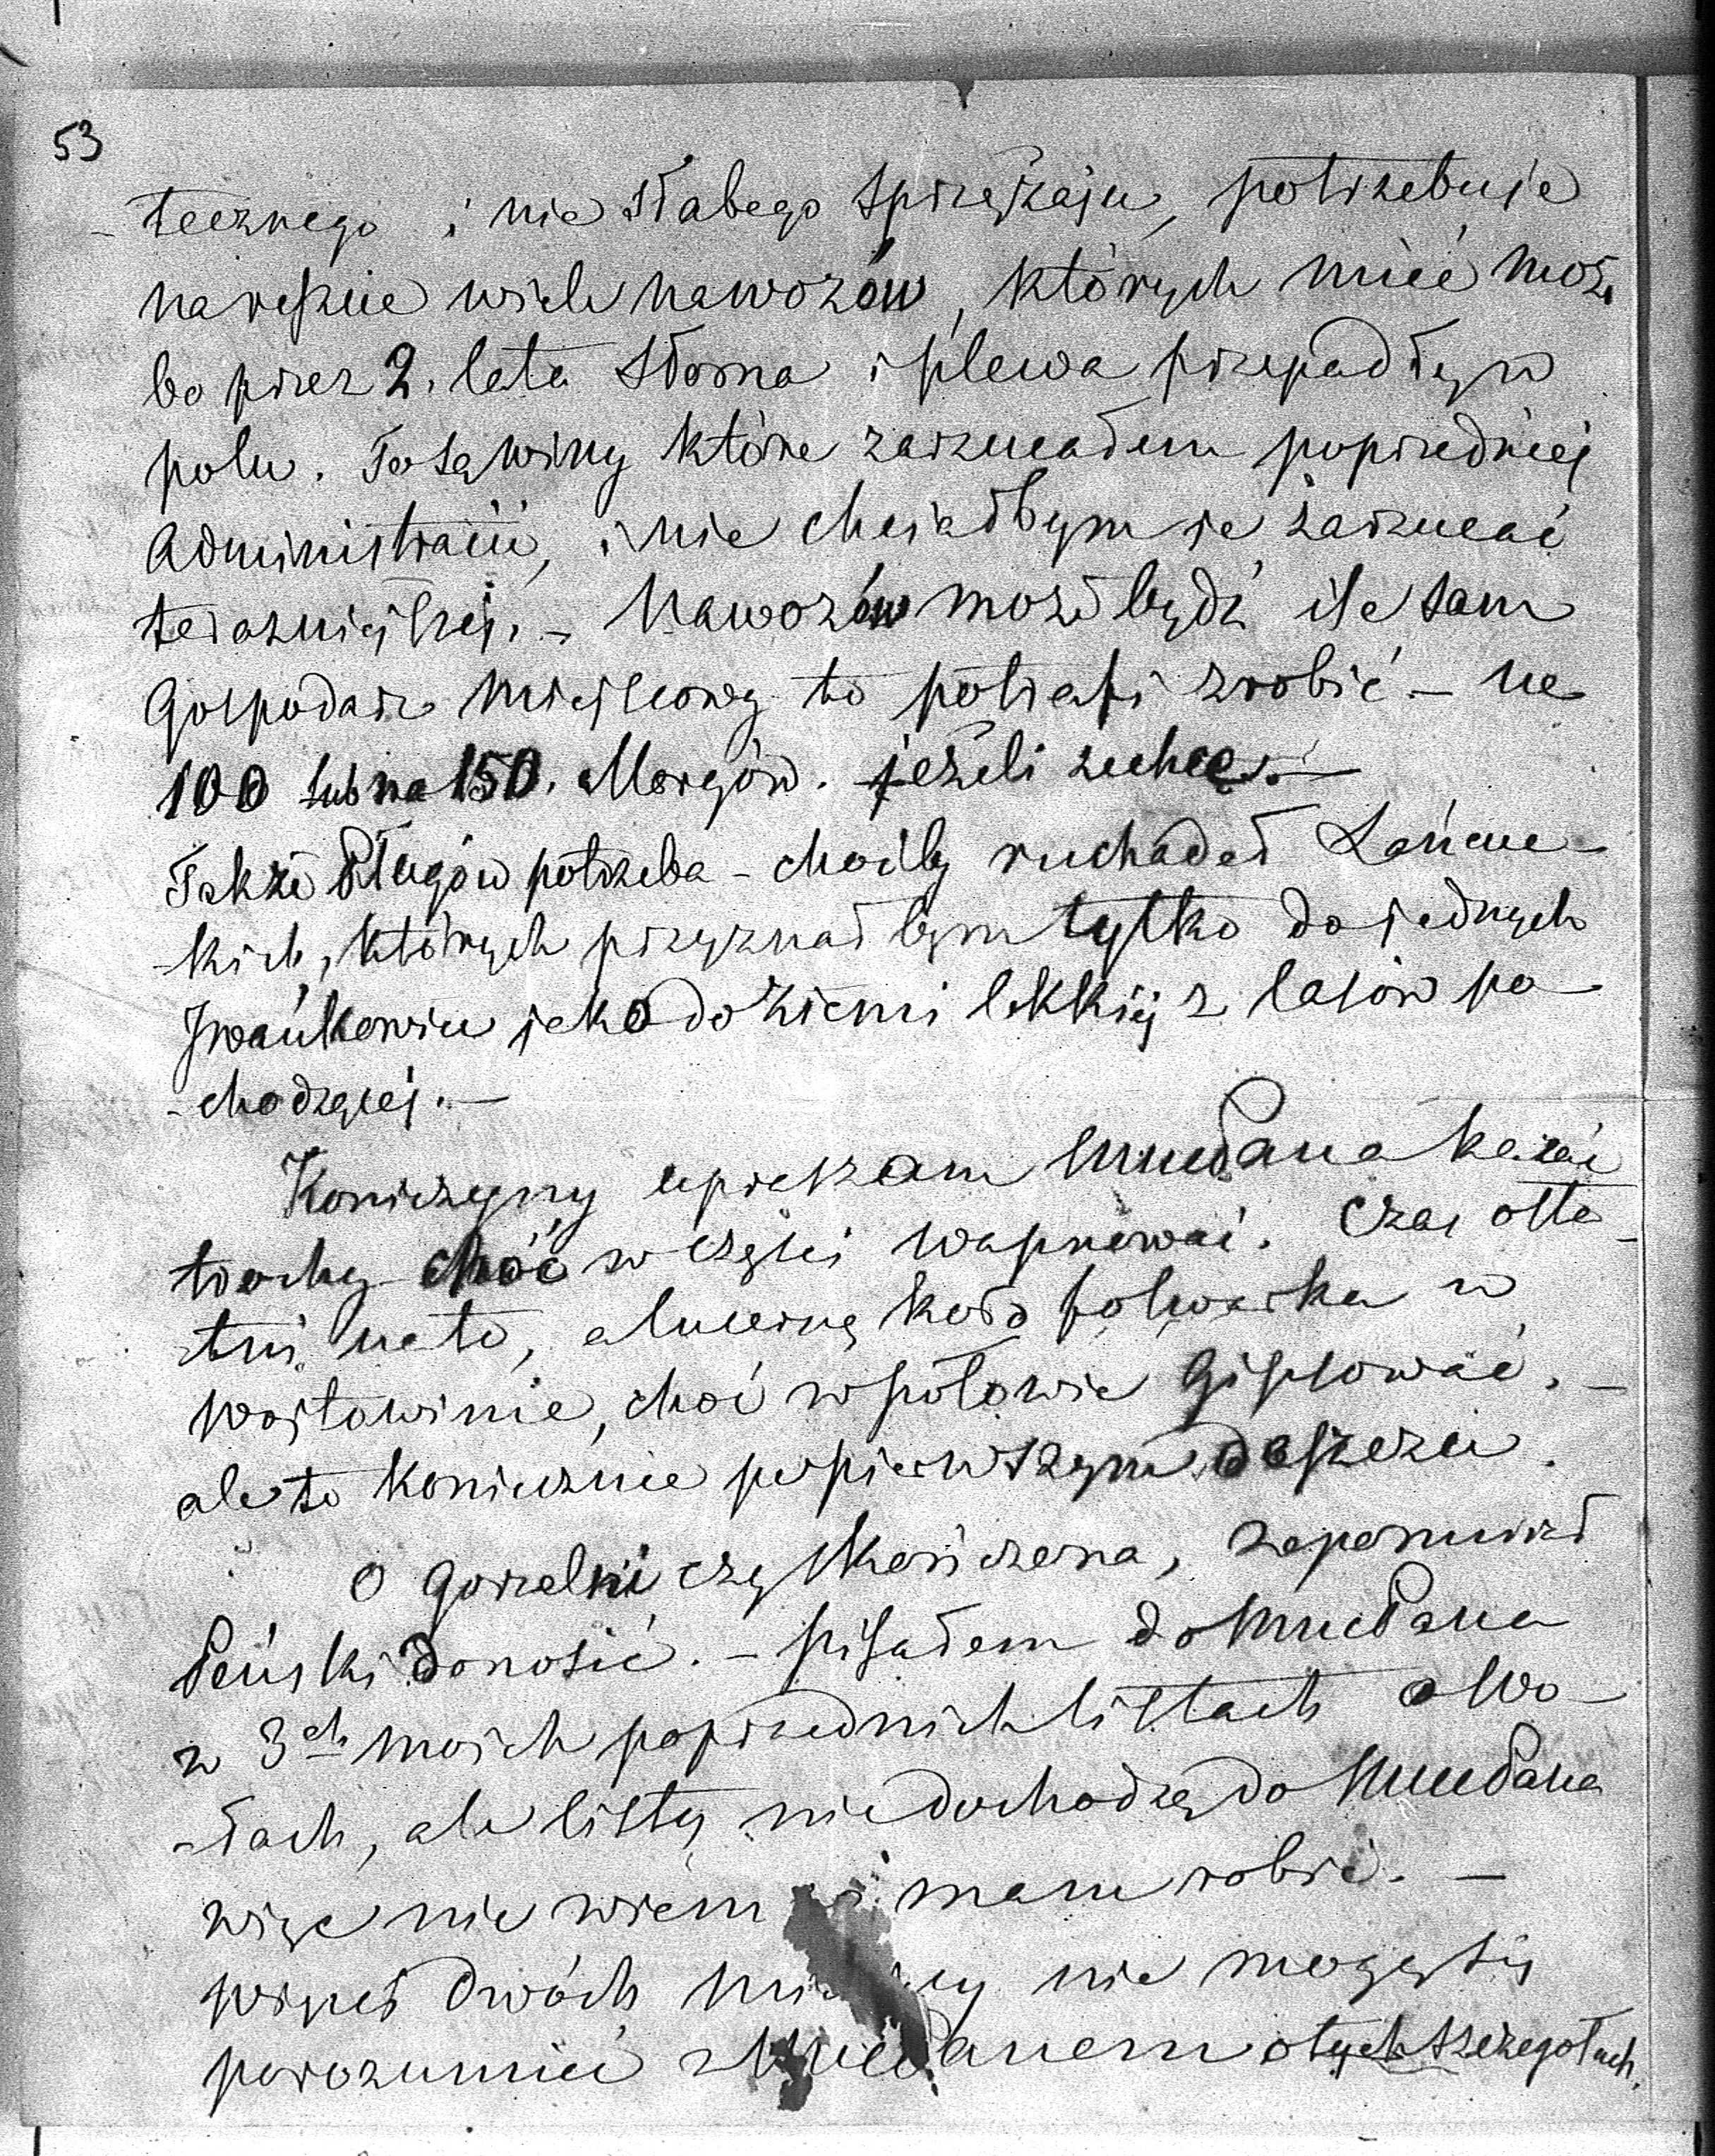 53
-tecznego i nie słabego sprzężaju, potrzebuje
nareszcie wiele nawozów, których mieć może
bo przez 2. lata słoma i plewa przepadły w
polu. To są winy które zarzucałem poprzedniej
Administracii, i nie chciałbym je zarzucać
teraźniejszej. – Nawozów może bydź ile sam
Gospodarz miejscowy to potrafi zrobić – na
100 lub na 150. Morgów. jeżeli zechce. –
Także Pługów potrzeba – choćby ruchadeł Łańcuc-
-kich, których przyznał bym tylko do jednych
Iwańkowiec jako do ziemi lekkiej z lasów po-
-chodzącej. –
Koniczyny upraszam WMcPana kazać
trochę choć w części wapnować. Czas osta-
-tni na to, a lucernę koło folwarka w
Wojtowinie, choć w połowie Gipsować. –
ale to koniecznie po pierwszym deszczu.
O Gorzelni czy skończona, zapomniał
Peński donosić. – pisałem do WMcPana
w 3ch moich poprzednich listach o Wo-
-łach, ale listy nie dochodzą do WMcPana
więc nie wiem mam robić. –
przez dwóch nie mogę się
porozumieć z WMcPanem o tych szczegółach.